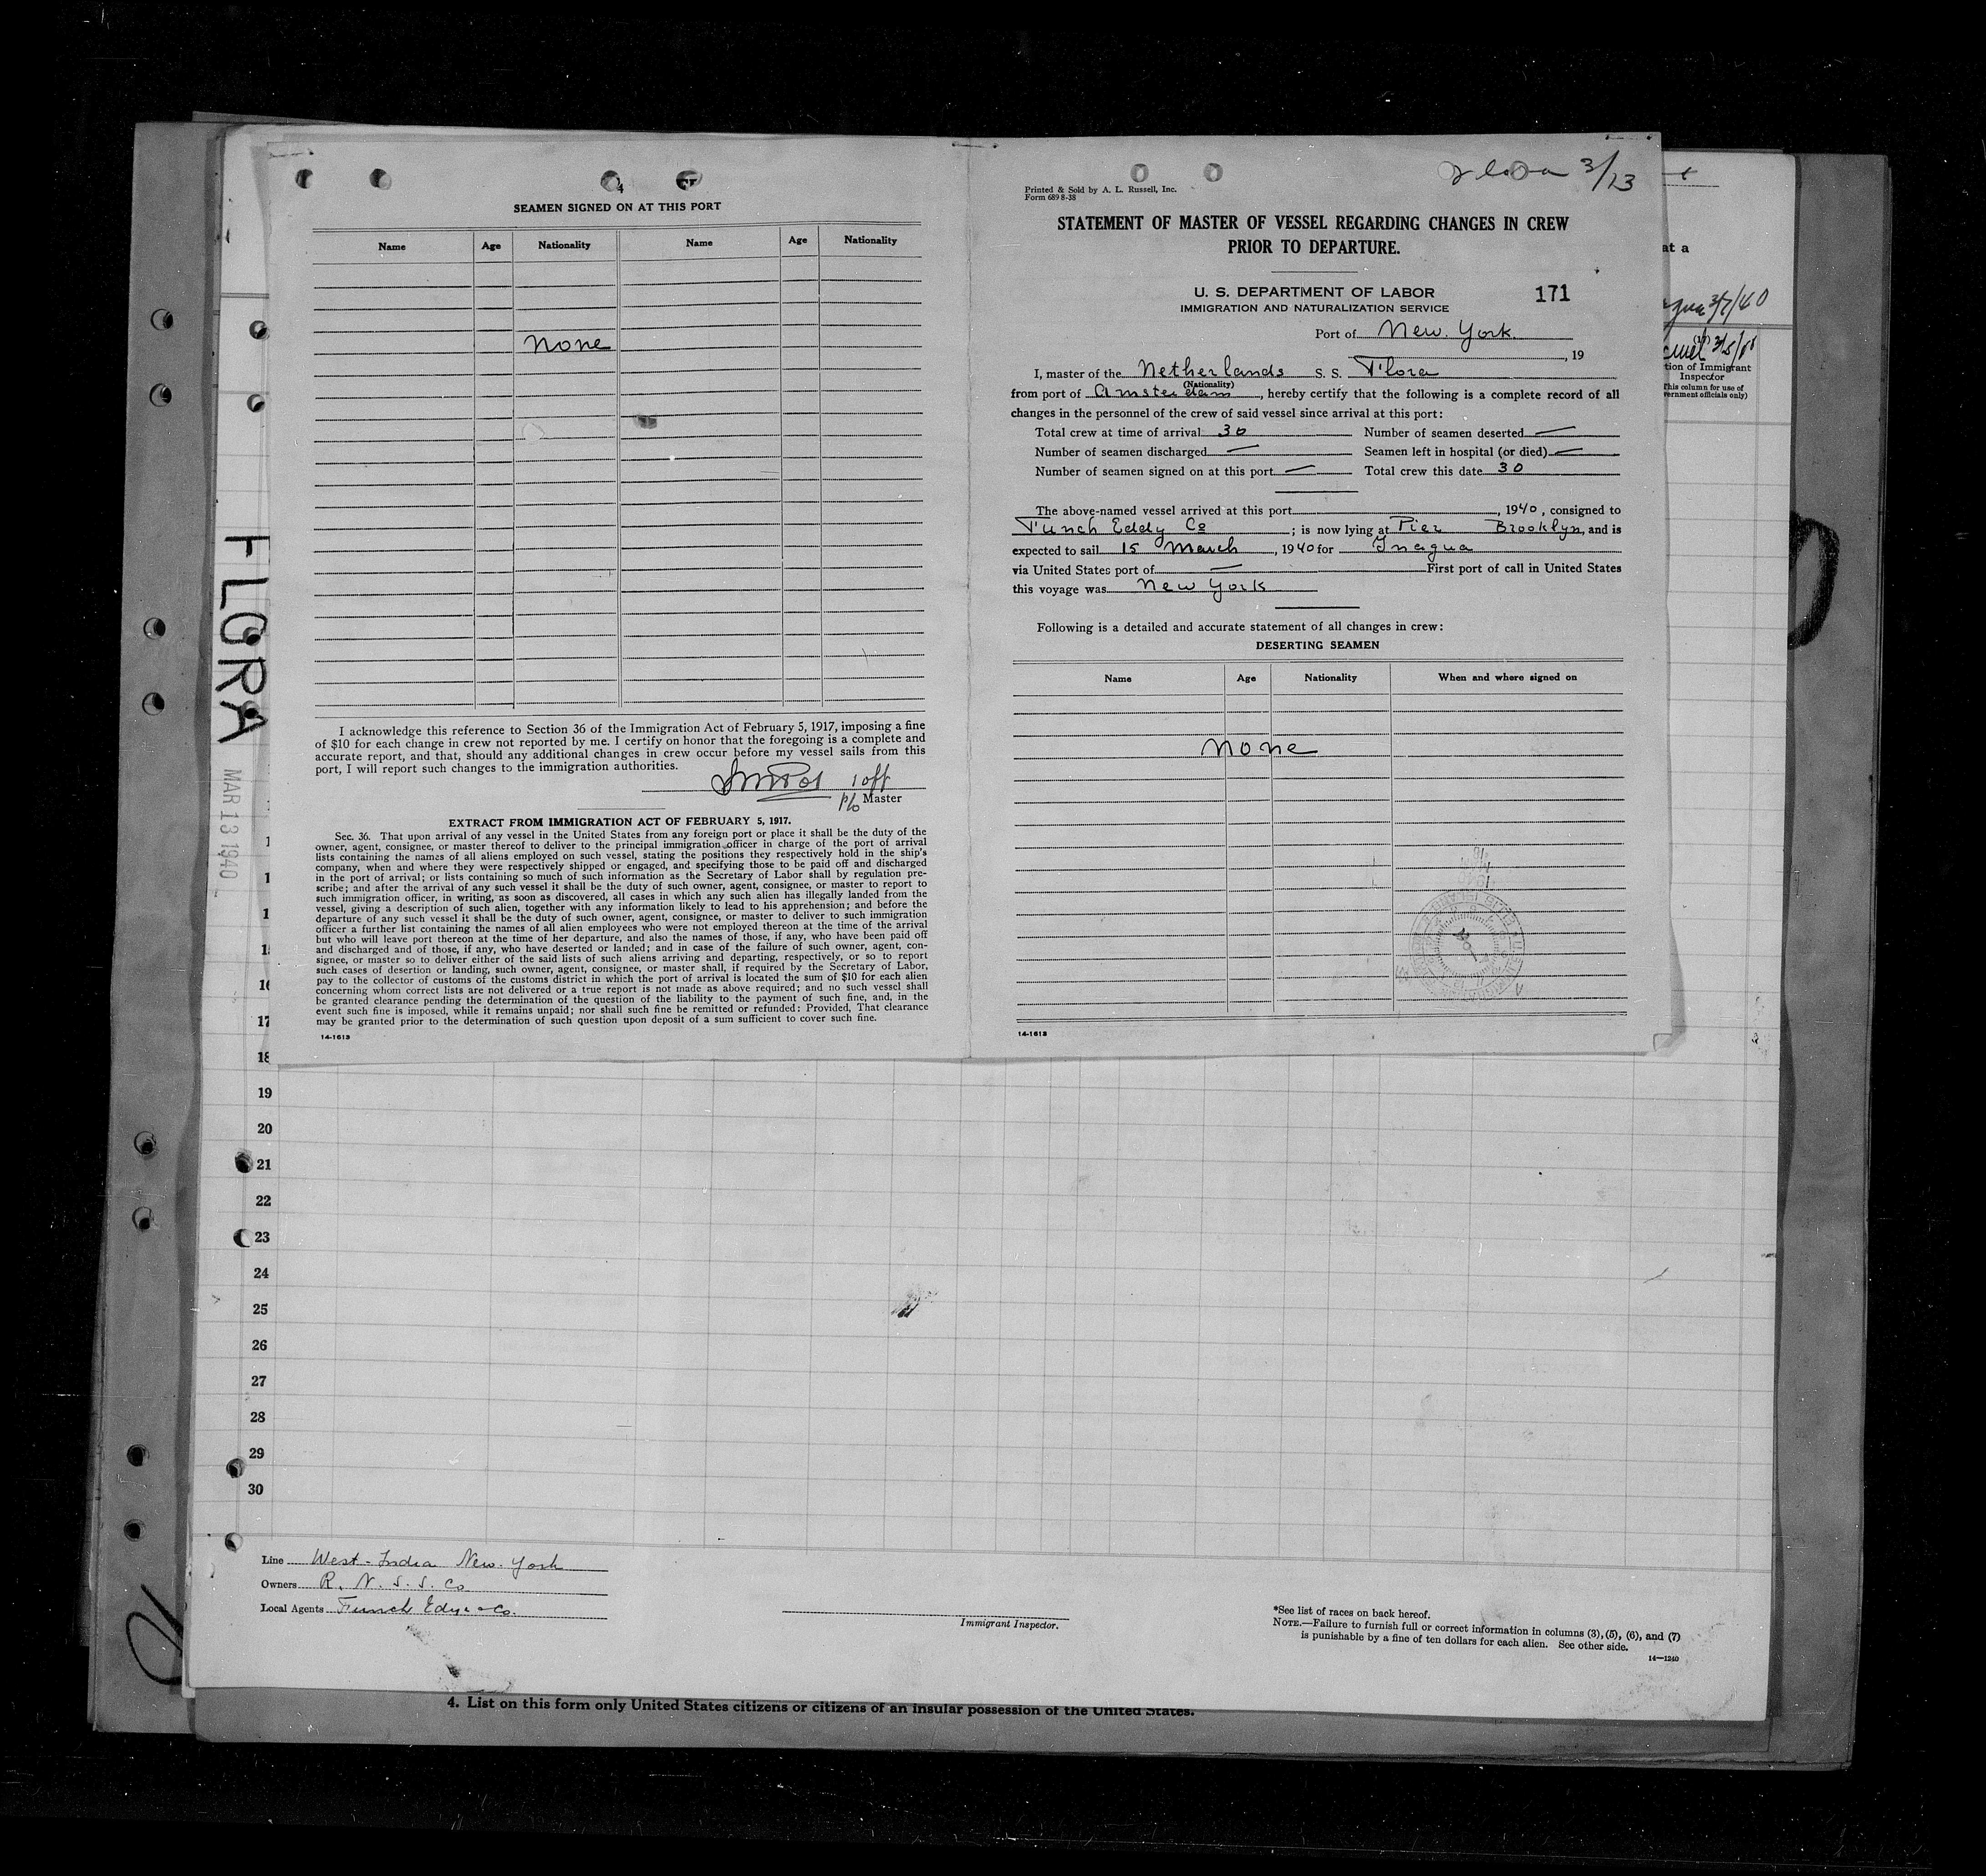 4
SEAMEN SIGNED ON AT THIS PORT
Name Age Nationality Name Age Nationality
None
I acknowledge this reference to Section 36 of the Immigration Act of February 5, 1917, imposing a fine
of $10 for each change in crew not reported by me. I certify on honor that the foregoing is a complete and
accurate report, and that, should any additional changes in crew occur before my vessel sails from this
port, I will report such changes to the immigration authorities.
1 off
p/o Master
EXTRACT FROM IMMIGRATION ACT OF FEBRUARY 5, 1917.
Sec. 36. That upon arrival of any vessel in the United States from any foreign port or place it shall be the duty of the
owner, agent, consignee, or master thereof to deliver to the principal immigration officer in charge of the port of arrival
lists containing the names of all aliens employed on such vessel, stating the positions they respectively hold in the ship's
company, when and where they were respectively shipped or engaged, and specifying those to be paid off and discharged
in the port of arrival; or lists containing so much of such information as the Secretary of Labor shall by regulation pre-
scribe; and after the arrival of any such vessel it shall be the duty of such owner, agent, consignee, or master to report to
such immigration officer, in writing, as soon as discovered, all cases in which any such alien has illegally landed from the
vessel, giving a description of such alien, together with any information likely to lead to his apprehension; and before the
departure of any such vessel it shall be the duty of such owner, agent, consignee, or master to deliver to such immigration
officer a further list containing the names of all alien employees who were not employed thereon at the time of the arrival
but who will leave port thereon at the time of her departure, and also the names of those, if any, who have been paid off
and discharged and of those, if any, who have deserted or landed; and in case of the failure of such owner, agent, con-
signee, or master so to deliver either of the said lists of such aliens arriving and departing, respectively, or so to report
such cases of desertion or landing, such owner, agent, consignee, or master shall, if required by the Secretary of Labor,
pay to the collector of customs of the customs district in which the port of arrival is located the sum of $10 for each alien
concerning whom correct lists are not delivered or a true report is not made as above required; and no such vessel shall
be granted clearance pending the determination of the question of the liability to the payment of such fine, and, in the
event such fine is imposed, while it remains unpaid; nor shall such fine be remitted or refunded: Provided, That clearance
may be granted prior to the determination of such question upon deposit of a sum sufficient to cover such fine.
14-1613
3/13
Printed & Sold by A. L. Russell, Inc.
Form 689 8-38
STATEMENT OF MASTER OF VESSEL REGARDING CHANGES IN CREW
PRIOR TO DEPARTURE.
U. S. DEPARTMENT OF LABOR 171
IMMIGRATION AND NATURALIZATION SERVICE
Port of New York
, 19
I, master of the Netherlands S. S. Flora
(Nationality)
from port of Amsterdam, hereby certify that the following is a complete record of all
changes in the personnel of the crew of said vessel since arrival at this port:
Total crew at time of arrival 30 Number of seamen deserted —
Number of seamen discharged — Seamen left in hospital (or died) —
Number of seamen signed on at this port — Total crew this date 30
The above-named vessel arrived at this port , 1940, consigned to
Funch Eddy Co ; is now lying at Pier Brooklyn, and is
expected to sail 15 March, 1940 for Inagua
via United States port of — First port of call in United States
this voyage was New York
Following is a detailed and accurate statement of all changes in crew:
DESERTING SEAMEN
Name Age Nationality When and where signed on
None
14-1613
at a
3/7/40
tion of Immigrant
Inspector
This column for use of
vernment officials only)
FLORA
MAR 13 1940
1
1
1
15
16
17
18
19
20
21
22
23
24
25
26
27
28
29
30
Line West-India New-York
Owners R. N. S. S. Co
Local Agents Funch Edye & Co.
Immigrant Inspector.
*See list of races on back hereof.
NOTE.—Failure to furnish full or correct information in columns (3), (5), (6), and (7)
is punishable by a fine of ten dollars for each alien. See other side.
14—1240
4. List on this form only United States citizens or citizens of an insular possession of the United States.